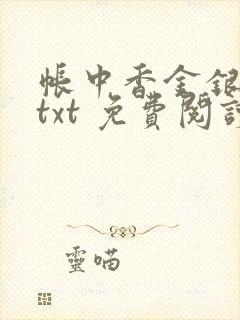 帳中香金銀
txt 免費閱讀
靈喵